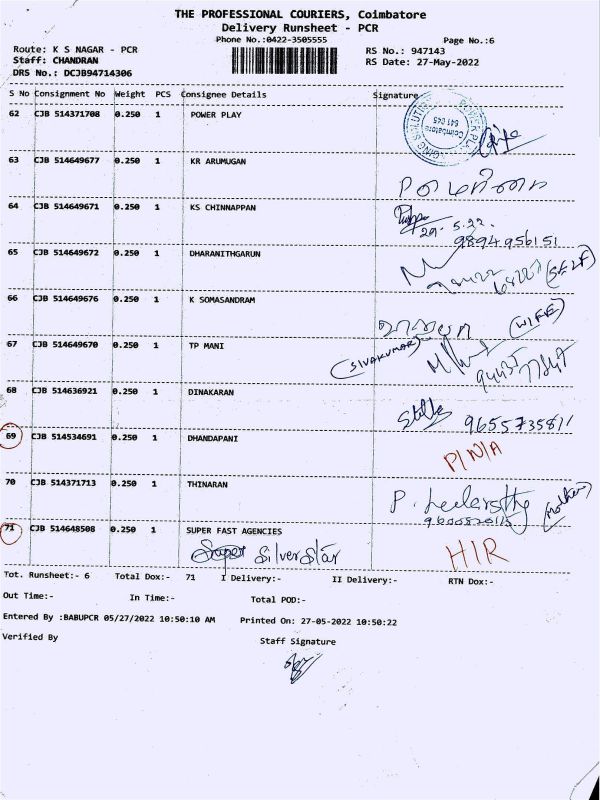 THE PROFESSIONAL COURIERS, Coimbatore
Delivery Runsheet - PCR
Phone No.:0422-3505555
Page No.:6
Route: K S NAGAR - PCR
RS No.: 947143
Staff: CHANDRAN
RS Date: 27-May-2022
DRS No.: DCJB94714306
S No Consignment No Weight PCS Consignee Details Signature
62 CJB 514371708 0.250 1 POWER PLAY
Coimbatore
641 045
63 CJB 514649677 0.250 1 KR ARUMUGAN
64 CJB 514649671 0.250 1 KS CHINNAPPAN
29.5.22.
9894956151
65 CJB 514649672 0.250 1 DHARANITHGARUN
(SELF)
66 CJB 514649676 0.250 1 K SOMASANDRAM
(WIFE)
67 CJB 514649670 0.250 1 TP MANI
(SIVAKUMAR)
68 CJB 514636921 0.250 1 DINAKARAN
9655735811
69 CJB 514534691 0.250 1 DHANDAPANI
P/N/A
70 CJB 514371713 0.250 1 THINARAN
(Mother)
71 CJB 514648508 0.250 1 SUPER FAST AGENCIES
Super Silver Star
HIR
Tot. Runsheet:- 6 Total Dox:- 71 I Delivery:- II Delivery:- RTN Dox:-
Out Time:- In Time:- Total POD:-
Entered By :BABUPCR 05/27/2022 10:50:10 AM Printed On: 27-05-2022 10:50:22
Verified By Staff Signature